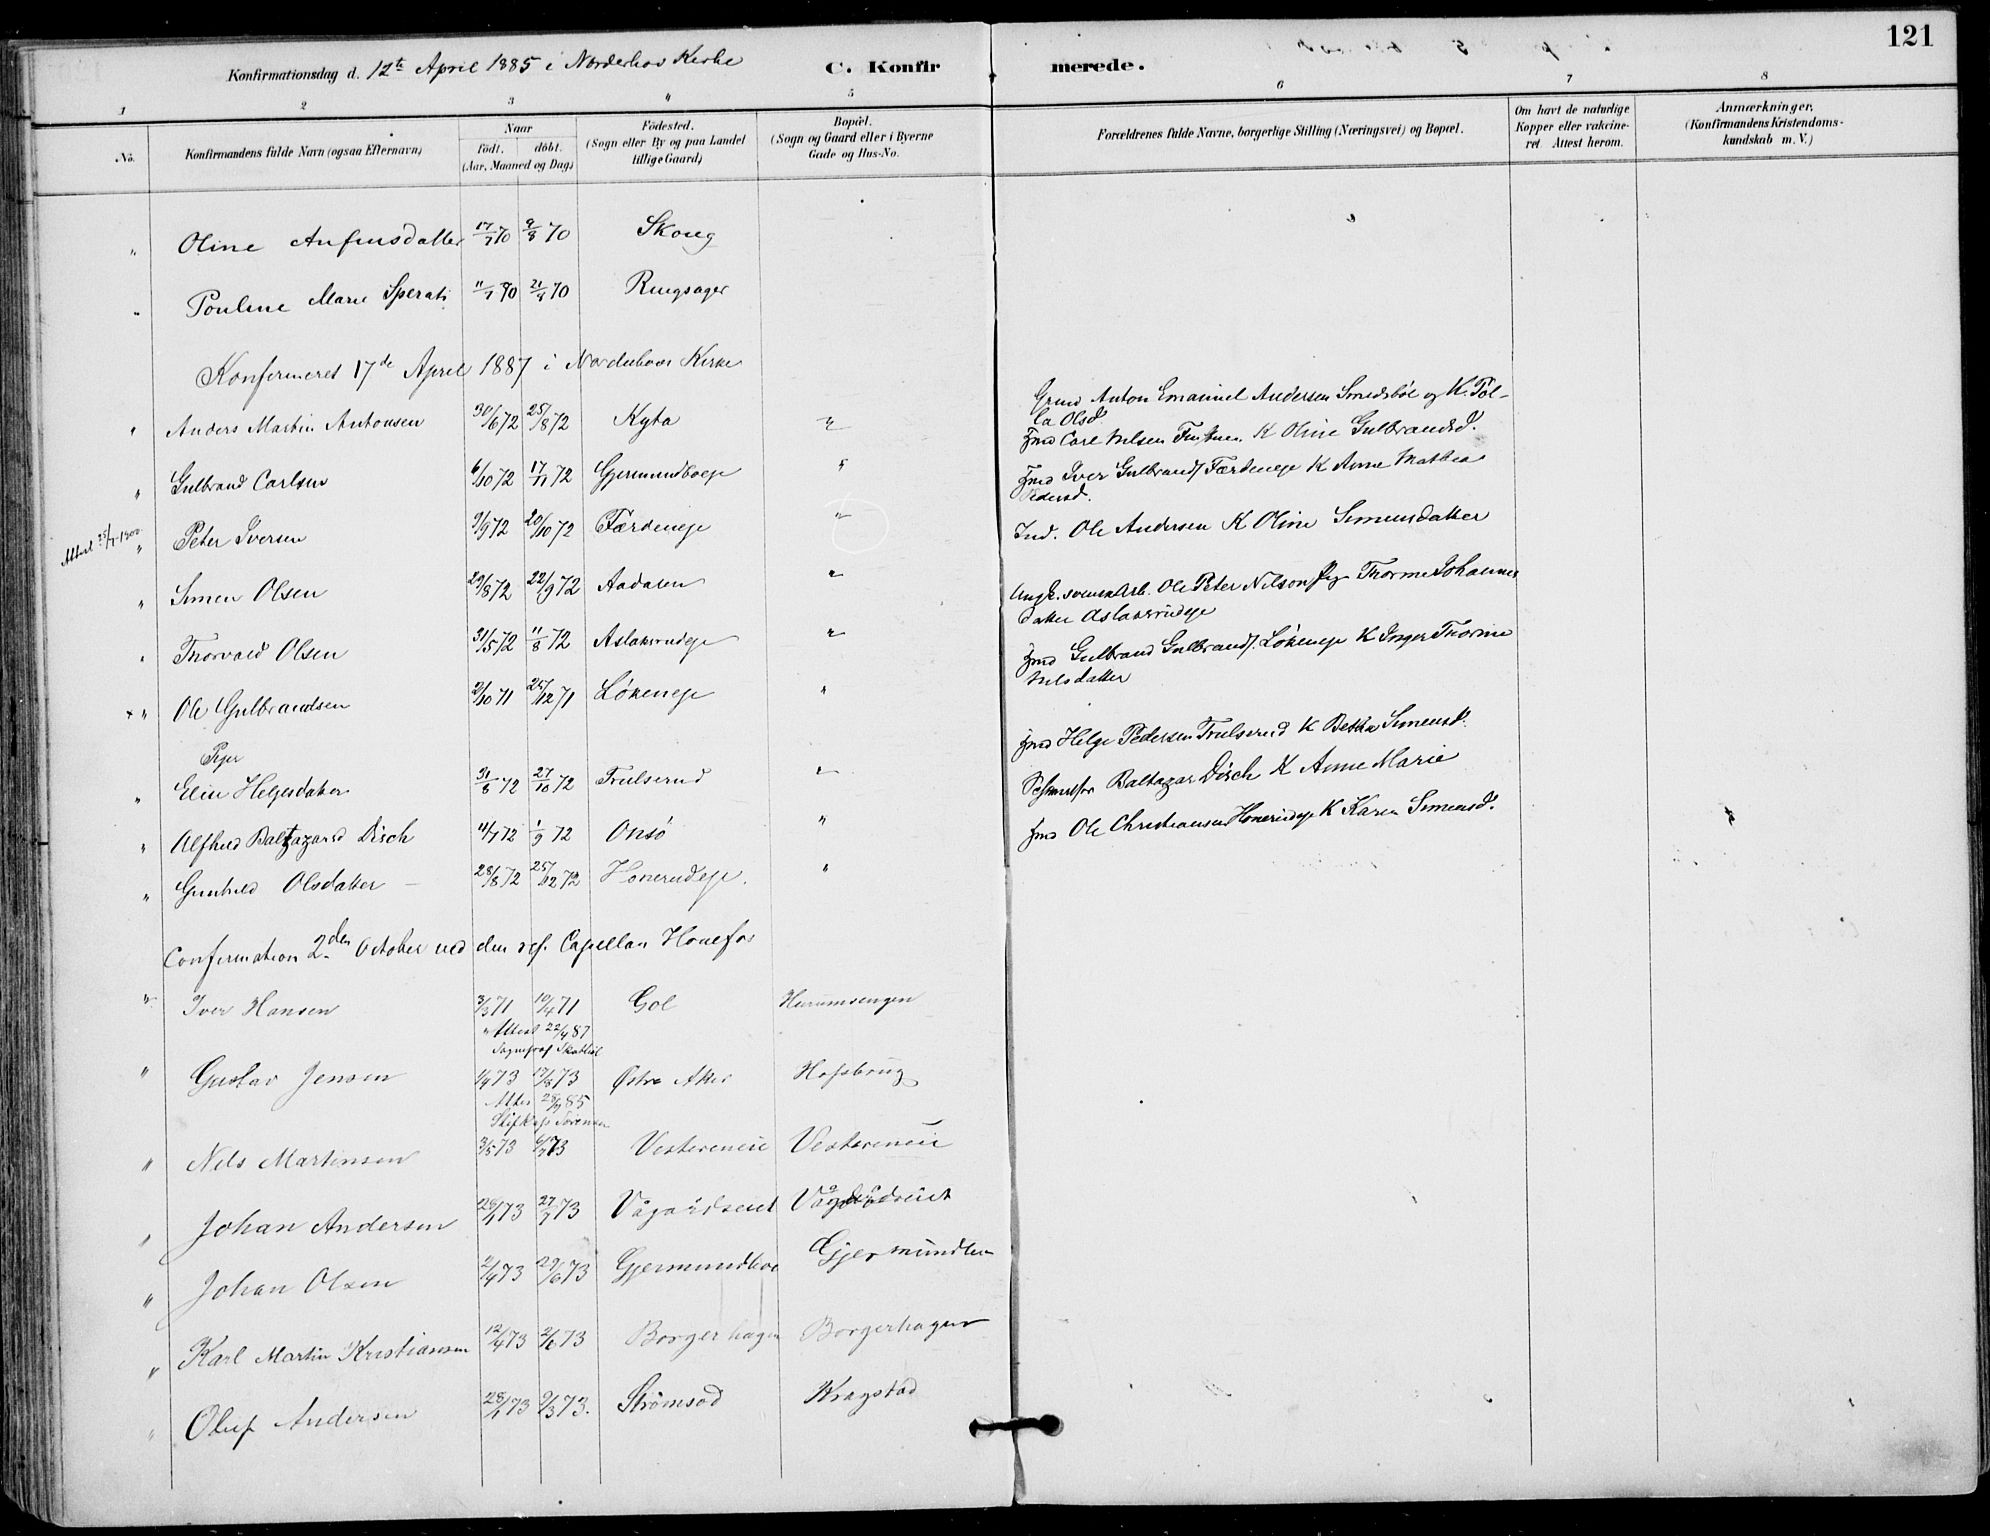 121
Konfirmationsdag d. 12te April 1885 i Norderhov Kirke C. Konfir merede.
1 2 3 " 5 6 7 8
No. Konfirmandens fulde Navn (ogsaa Efternavn) Naar født. døbt. (Aar, Maaned og Dag) Fødested. (Sogn eller By og paa Landet tillige Gaard) Bopæl. (Sogn og Gaard eller i Byerne Gade og Hus-No. Forældrenes fulde Navne, borgerlige Stilling (Næringsvei) og Bopæl. Om havt de naturlige Kopper eller vakcineret. Attest herom. Anmærkninger, (Konfirmandens Kristendomskundskab m. V.)
" Oline Anfinsdatter 17/7 70 9/8 70 Skoug
" Pouline Marie Sperati 11/1 70 21/4 70 Ringsager
Konfirmeret 17de April 1887 i Norderhovs Kirke
" Anders Martin Antonsen 30/6 72 25/8 72 Kyta " Anton Emanuel Andersen Smedsböl og K.
Olsd
" Gulbrand Carlsen 6/10 72 17/11 72 Gjermundboeje " Ind Carl Nilsen K Oline Gulbrandsd.
Attest 1900
" Peter Iversen 9/9 72 20/10 72 Færdeneje " Ind Iver Gulbrands. Færdeneje K Anne Mathea
Pedersd.
" Simen Olsen 29/8 72 22/9 72 Aadasen " Ind. Ole Andersen K Oline Simensdatter
" Thorvald Olsen 31/5 72 11/8 72 Aslaksrudeje " Ungk. svensk Arb. Ole Peter Nilson Pig Thorine Johannes
datter Aslaksrudeje
x " Ole Gulbrandsen 2/10 71 25/12 71 Lökeneje " Ind Gulbrand Gulbrands. Lökeneje K Inger Thorine
Nilsdatter
Piger
" Elise Helgesdatter 31/8 72 27/10 72 Trulserud " Ind Helge Pedersen Trulserud K Betha Simensd.
" Alfhild Baltazarsd Disch 11/7 72 1/9 72 Onsö " Baltazar Disch K Anne Marie
" Gunhild Olsdatter 28/8 72 25/12 72 Honerudeje. " Ind Ole Christiansen Honerudeje K Karen Simensd.
Confirmation 2den October ved den res. Capellan Hönefos
" Iver Hansen 3/3 71 10/4 71 Gol Hurumsengen
" Attest 22/4 87
" Gustav Jensen 1/4 73 17/8 73 Østre Aker Hofsbrug
Attes 28/9 85
" Nils Martinsen 3/5 73 6/7 73 Vestereneie Vestereneie
" Johan Andersen 28/1 73 27/7 73
" Johan Olsen 2/4 73 29/6 73 Gjermundboe
" Karl Martin Kristiansen 12/4 73 2/6 73 Borgerhagen Borgerhagen
" Oluf Andersen 28/1 73 9/3 73. Strömsod Kragstad